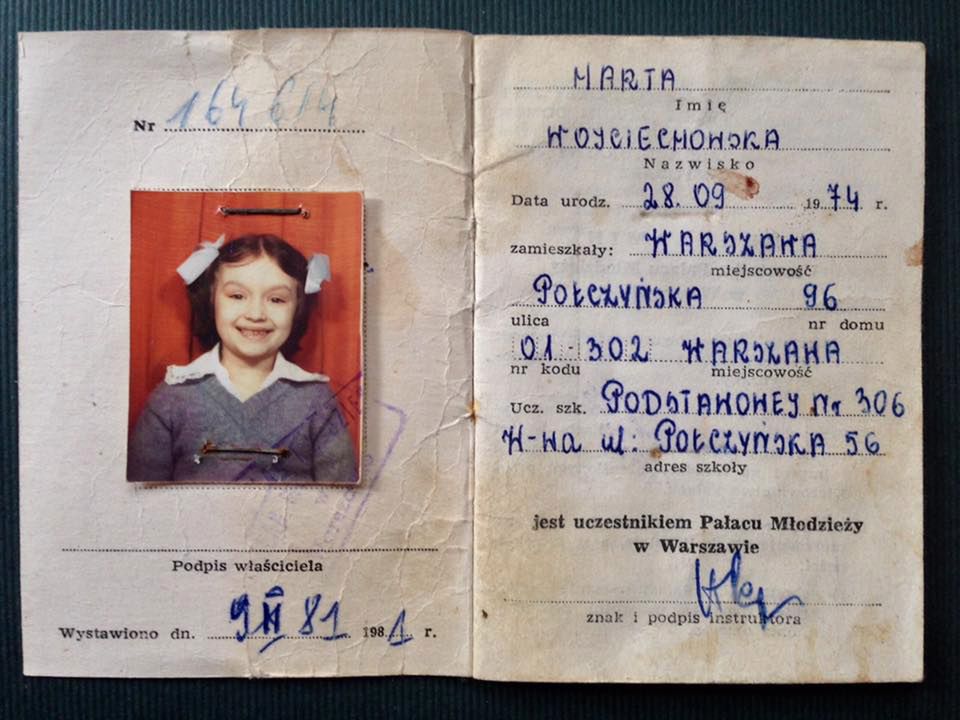 Nr 164 614
Podpis właściciela
Wystawiono dn. 9 81 1981 r.
MARTA
Imię
WOJCIECHOWSKA
Nazwisko
Data urodz. 28.09 1974 r.
zamieszkały: WARSZAWA
miejscowość
POŁCZYŃSKA 96
ulica nr domu
01-302 WARSZAWA
nr kodu miejscowość
Ucz. szk. PODSTAWOWEJ Nr 306
W-wa ul: POŁCZYŃSKA 56
adres szkoły
jest uczestnikiem Pałacu Młodzieży
w Warszawie
znak i podpis instruktora